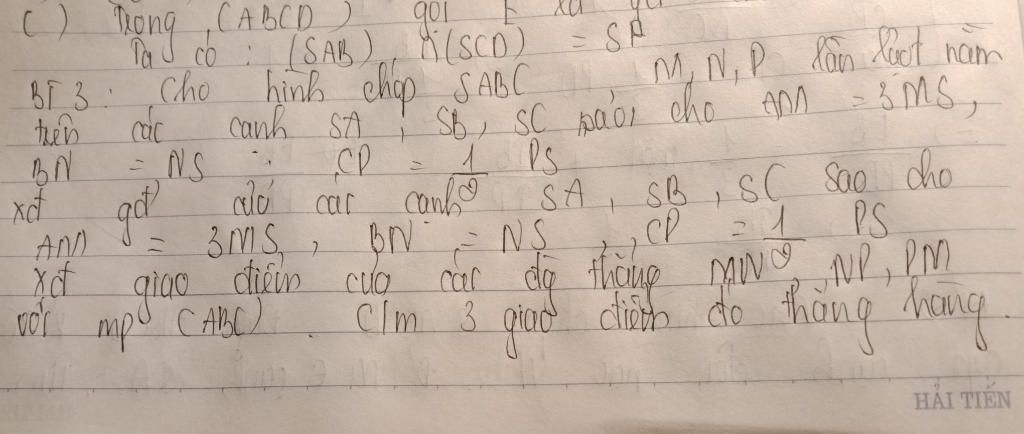 c) Trong (ABCD) gọi E
Ta có : (SAB) (SCD) = SF
BT3: Cho hình chóp SABC , M, N, P lần lượt nằm
trên các cạnh SA , SB, SC cho AM = 3MS,
BN = NS CP = 1/2 PS
xđ gđ các cạnh SA , SB , SC sao cho
AM = 3MS, BN = NS , CP = 1/2 PS
xđ giao điểm của các đg thẳng MN, NP, PM
với mp (ABC) . C/m 3 giao điểm đó thẳng hàng.
HẢI TIẾN